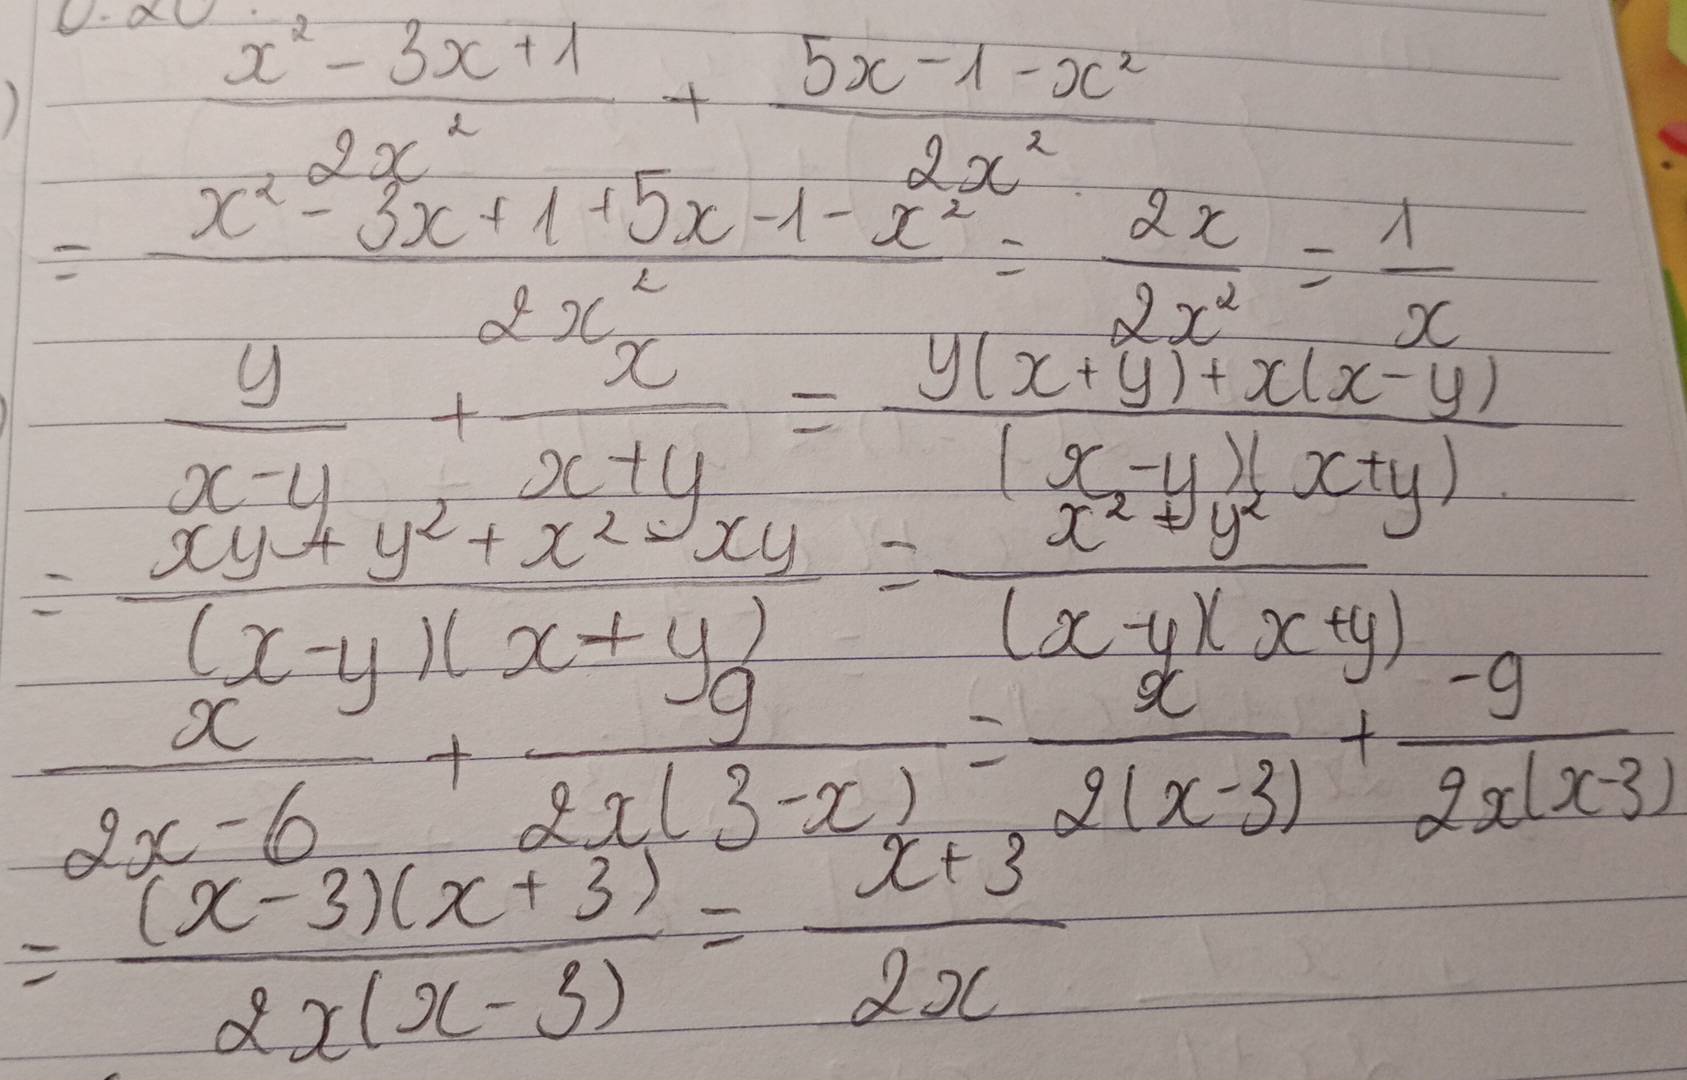 6.20.
) (x² - 3x + 1)/(2x²) + (5x - 1 - x²)/(2x²)
= (x² - 3x + 1 + 5x - 1 - x²)/(2x²) = 2x/(2x²) = 1/x
) y/(x - y) + x/(x + y) = (y(x + y) + x(x - y))/((x - y)(x + y))
= (xy + y² + x² - xy)/((x - y)(x + y)) = (x² + y²)/((x - y)(x + y))
x/(2x - 6) + 9/(2x(3 - x)) = x/(2(x - 3)) + (-9)/(2x(x - 3))
= ((x - 3)(x + 3))/(2x(x - 3)) = (x + 3)/(2x)